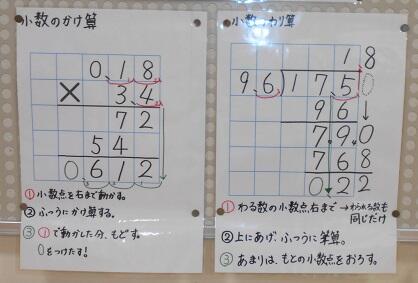 小数のかけ算
0.18
× 3.4
72
54
0.612
①小数点を右まで動かす。
②ふつうにかけ算する。
③①で動かした分、もどす。
0をつけたす!
小数のわり算
1.8
9.6)17.50
96
790
768
0.22
①わる数の小数点右まで→わられる数も
同じだけ
②上にあげ、ふつうに筆算。
③あまりは、もとの小数点をおろす。